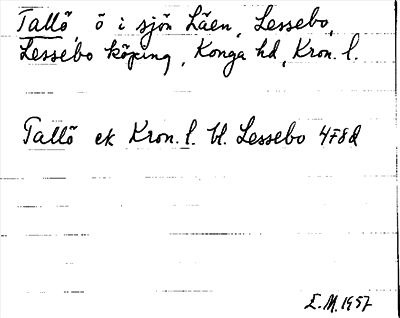 Tallö, ö i sjön Läen, Lessebo,
Lessebo köping, Konga hd, Kron. l.
Tallö ek Kron. l. bl. Lessebo 4F8d
E.M. 1957